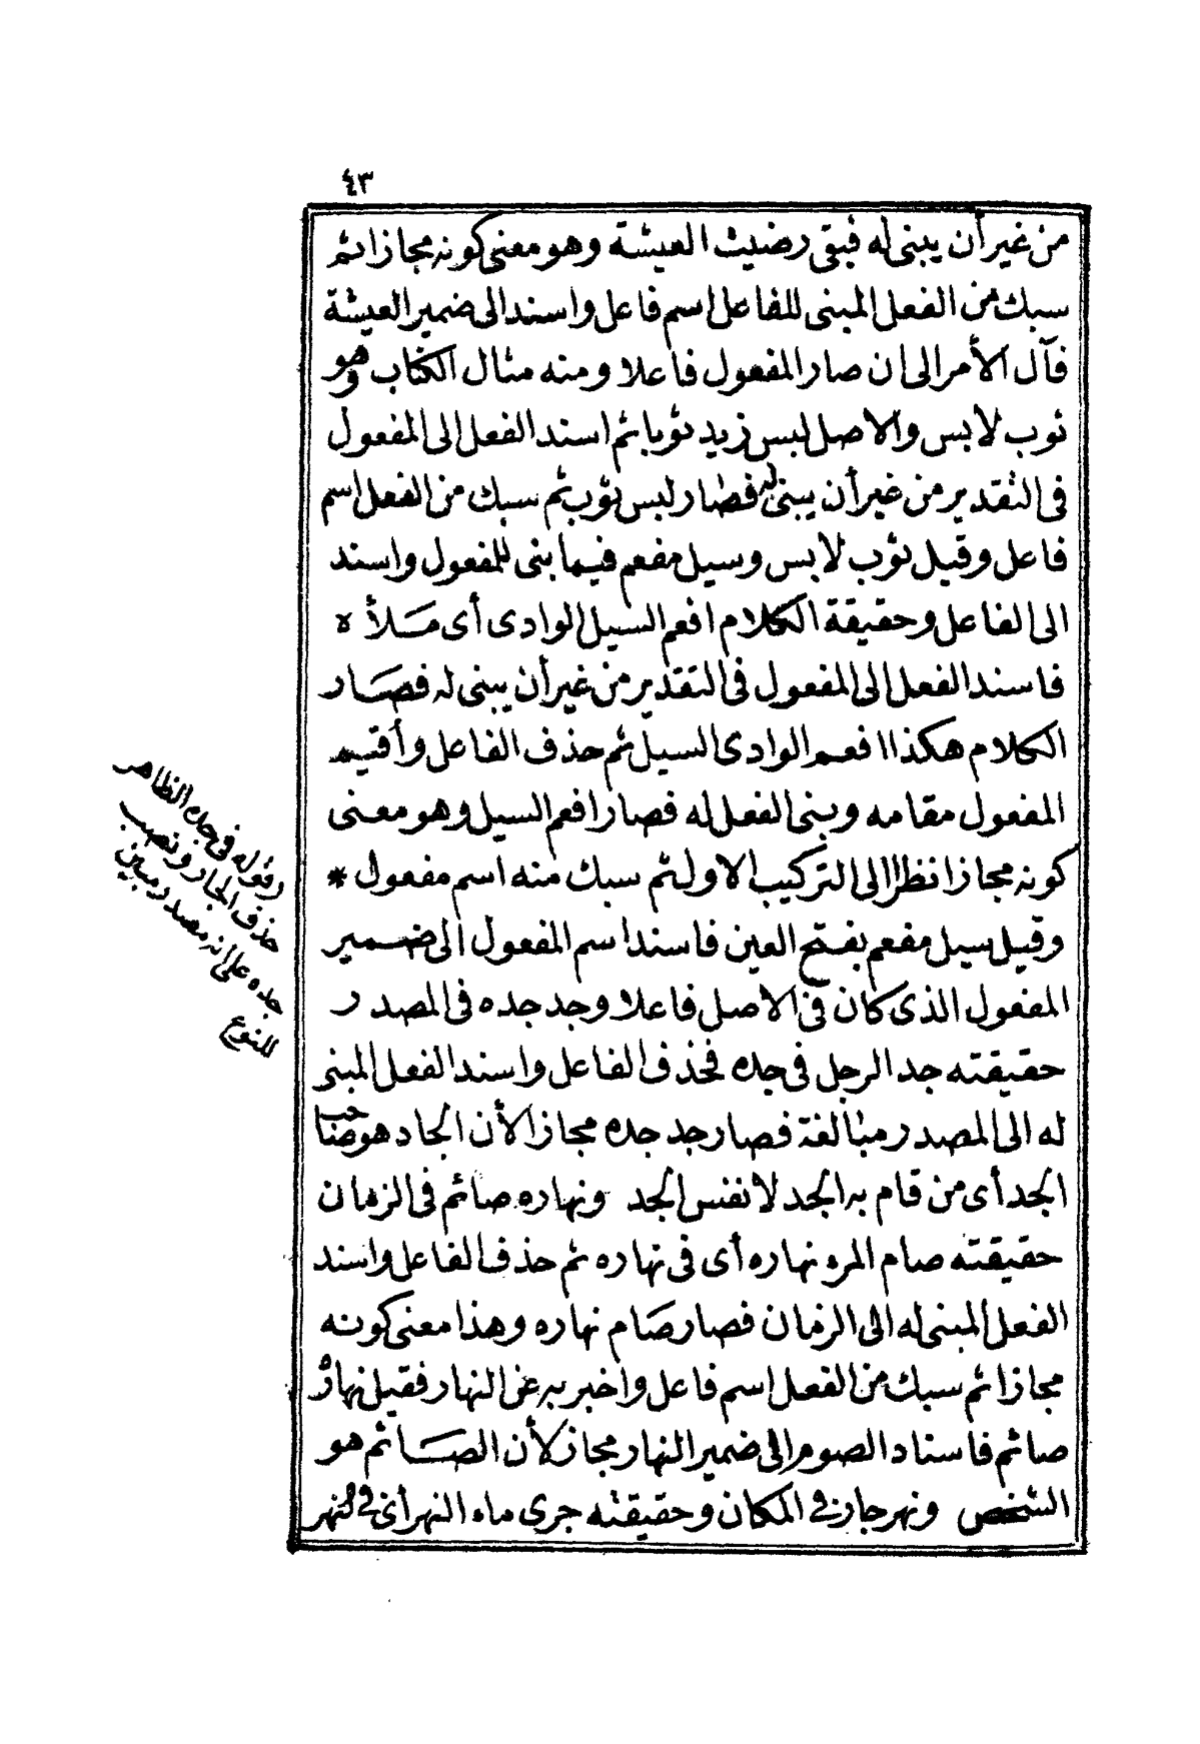 ٤٣
من غير أن يبنى له فبقى رضيت العيشة وهو معنى كونه مجازا ثم
سبك من الفعل المبنى للفاعل اسم فاعل واسند الى ضمير العيشة
فآل الأمر الى ان صار المفعول فاعلا ومنه مثال الكتاب وهو
ثوب لابس والاصل لبس زيد ثوبا ثم اسند الفعل الى المفعول
فى التقدير من غير أن يبنى له فصار لبس ثوب ثم سبك من الفعل اسم
فاعل وقيل ثوب لابس وسيل مفعم فيما بنى للمفعول واسند
الى الفاعل وحقيقة الكلام افعم السيل الوادى أى ملأه
فاسند الفعل الى المفعول فى التقدير من غير أن يبنى له فصار
الكلام هكذا افعم الوادى السيل ثم حذف الفاعل وأقيم
المفعول مقامه وبنى الفعل له فصار افعم السيل وهو معنى
كونه مجازا نظرا الى التركيب الاول ثم سبك منه اسم مفعول *
وقيل سيل مفعم بفتح العين فاسند اسم المفعول الى ضمير
المفعول الذى كان فى الاصل فاعلا وجد جده فى المصدر
حقيقته جد الرجل فى جده فحذف الفاعل واسند الفعل المبنى
له الى المصدر مبالغة فصار جد جده مجازا لأن الجاد هو صاحب
الجد أى من قام به الجد لا نفس الجد ونهاره صائم فى الزمان
حقيقته صام المرء نهاره أى فى نهاره ثم حذف الفاعل واسند
الفعل المبنى له الى الزمان فصار صام نهاره وهذا معنى كونه
مجازا ثم سبك من الفعل اسم فاعل واخبر به عن النهار فقيل نهاره
صائم فاسناد الصوم الى ضمير النهار مجاز لأن الصائم هو
الشخص ونهر جار فى المكان وحقيقته جرى ماء النهر أى فى النهر
(قوله فى جده الظاهر
حذف الجار ونصب
جده على انه مصدر مبين
للنوع